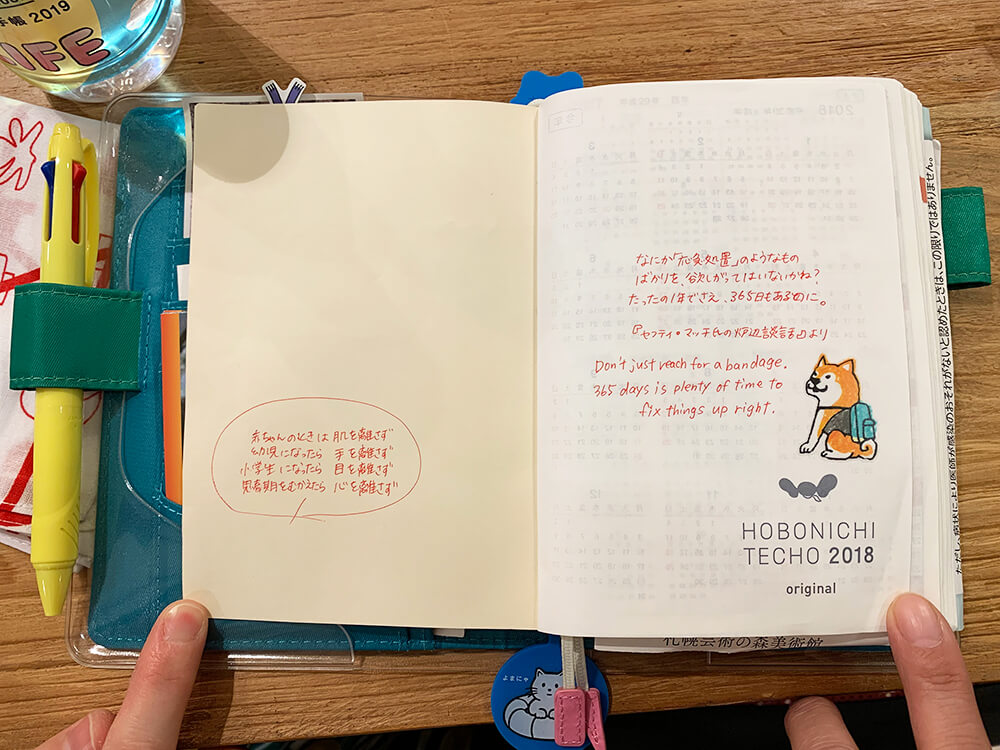 手帳 2019
LIFE
赤ちゃんのときは 肌を離さず
幼児になったら 手を離さず
小学生になったら 目を離さず
思春期をむかえたら 心を離さず
なにか「応急処置」のようなもの
ばかりを、欲しがってはいないかね?
たったの1年でさえ、365日もあるのに。
『セフティ・マッチ氏の炉辺談話』より
Don't just reach for a bandage.
365 days is plenty of time to
fix things up right.
HOBONICHI
TECHO 2018
original
ただし、病状により医師が感染のおそれがないと認めたときは、この限りではありません。
札幌芸術の森美術館
よまにゃ